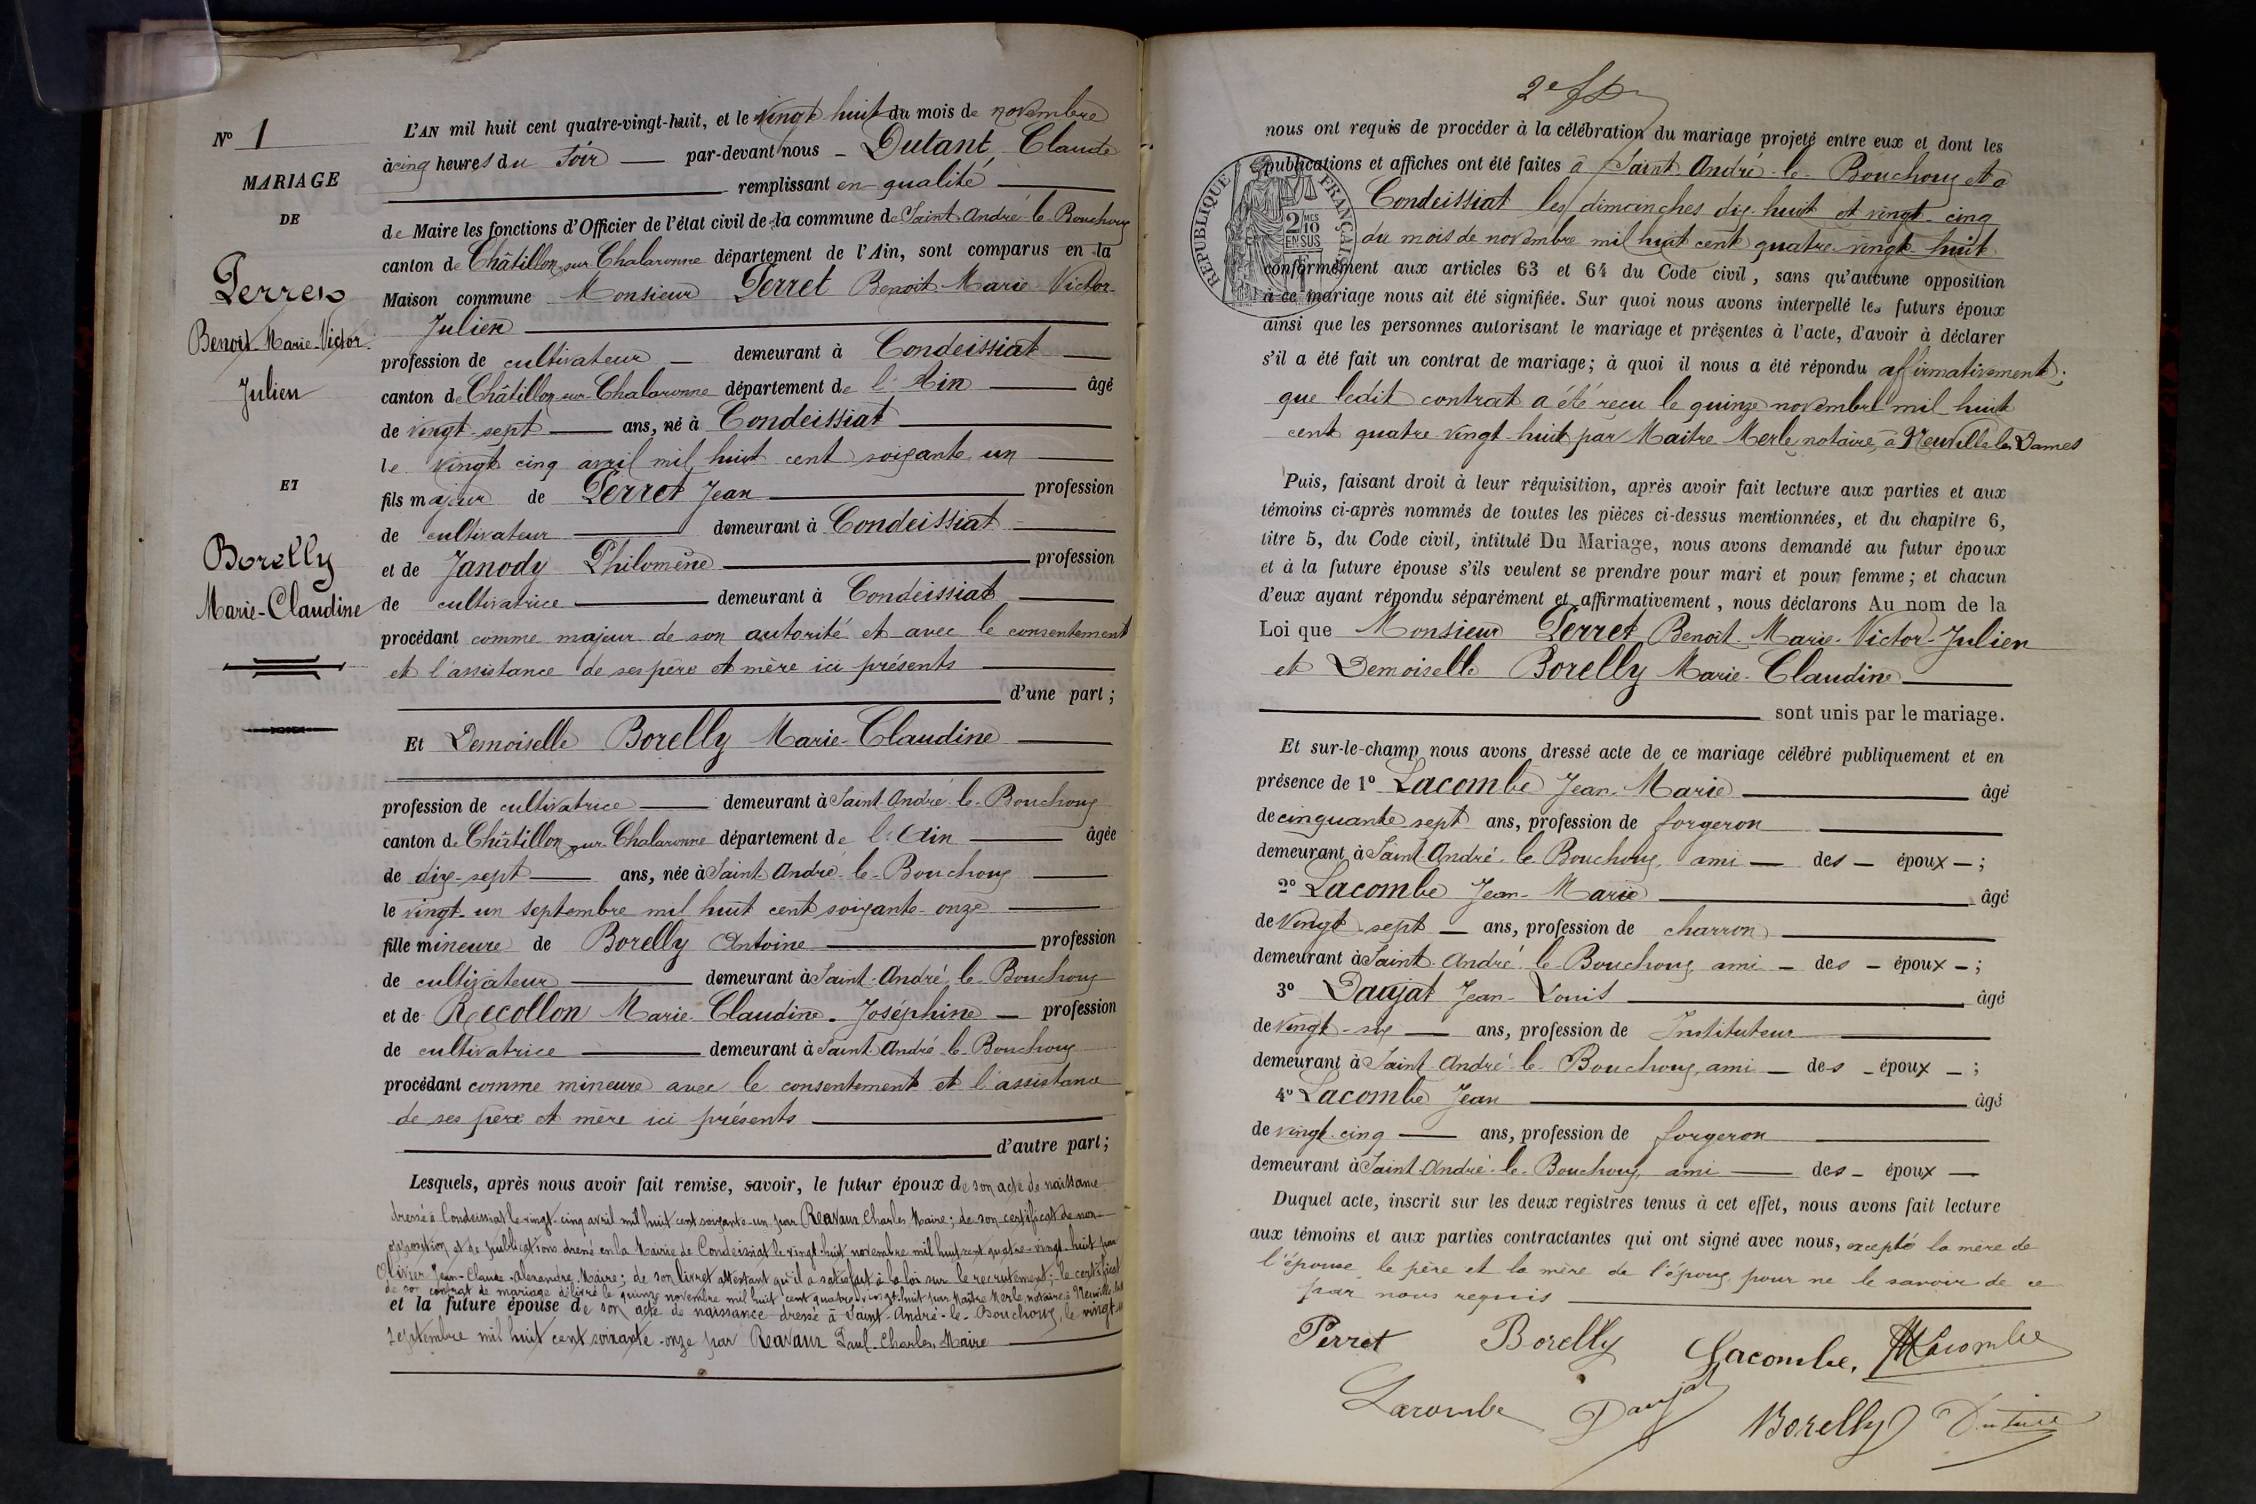 N° 1
MARIAGE
DE
Perret
Benoit-Marie-Victor
Julien
ET
Borelly
Marie-Claudine
L'AN mil huit cent quatre-vingt-huit, et le vingt huit du mois de novembre
à cinq heures du soir par-devant nous Dutant Claude
remplissant en qualité
de Maire les fonctions d'Officier de l'état civil de la commune de Saint André-le-Bouchoux
canton de Châtillon-sur-Chalaronne département de l'Ain, sont comparus en la
Maison commune Monsieur Perret Benoit Marie Victor
Julien
profession de cultivateur demeurant à Condeissiat
canton de Châtillon-sur-Chalaronne département de l'Ain âgé
de vingt-sept ans, né à Condeissiat
le vingt cinq avril mil huit cent soixante un
fils majeur de Perret Jean profession
de cultivateur demeurant à Condeissiat
et de Janody Philomène profession
de cultivatrice demeurant à Condeissiat
procédant comme majeur de son autorité et avec le consentement
et l'assistance de ses père et mère ici présents
d'une part;
Et Demoiselle Borelly Marie-Claudine
profession de cultivatrice demeurant à Saint-André-le-Bouchoux
canton de Châtillon-sur-Chalaronne département de l'Ain âgée
de dix-sept ans, née à Saint-André-le-Bouchoux
le vingt-un septembre mil huit cent soixante-onze
fille mineure de Borelly Antoine profession
de cultivateur demeurant à Saint-André-le-Bouchoux
et de Recollon Marie-Claudine-Joséphine profession
de cultivatrice demeurant à Saint-André-le-Bouchoux
procédant comme mineure avec le consentement et l'assistance
de ses père et mère ici présents
d'autre part;
Lesquels, après nous avoir fait remise, savoir, le futur époux de son acte de naissance
dressé à Condeissiat le vingt-cinq avril mil huit cent soixante-un par Reavaux Charles Maire; de son certificat de non-
opposition et de publications dressé en la Mairie de Condeissiat le vingt-huit novembre mil huit cent quatre-vingt-huit par
Olivier Jean-Claude-Alexandre, Maire; de son livret attestant qu'il a satisfait à la loi sur le recrutement; le certificat
de son contrat de mariage délivré le quinze novembre mil huit cent quatre-vingt-huit par Maître Merle, notaire à Neuville
et la future épouse de son acte de naissance dressé à Saint-André-le-Bouchoux, le vingt-un
septembre mil huit cent soixante-onze par Reavaux Paul-Charles, Maire
2e
nous ont requis de procéder à la célébration du mariage projeté entre eux et dont les
publications et affiches ont été faites à Saint André-le-Bouchoux et à
Condeissiat les dimanches dix-huit et vingt-cinq
du mois de novembre mil huit cent quatre-vingt-huit
RÉPUBLIQUE FRANÇAISE
2 MES
10
EN SUS
conformément aux articles 63 et 64 du Code civil, sans qu'aucune opposition
à ce mariage nous ait été signifiée. Sur quoi nous avons interpellé les futurs époux
ainsi que les personnes autorisant le mariage et présentes à l'acte, d'avoir à déclarer
s'il a été fait un contrat de mariage; à quoi il nous a été répondu affirmativement;
que ledit contrat a été reçu le quinze novembre mil huit
cent quatre-vingt-huit par Maître Merle notaire, à Neuville les Dames
Puis, faisant droit à leur réquisition, après avoir fait lecture aux parties et aux
témoins ci-après nommés de toutes les pièces ci-dessus mentionnées, et du chapitre 6,
titre 5, du Code civil, intitulé Du Mariage, nous avons demandé au futur époux
et à la future épouse s'ils veulent se prendre pour mari et pour femme; et chacun
d'eux ayant répondu séparément et affirmativement, nous déclarons Au nom de la
Loi que Monsieur Perret Benoit-Marie-Victor-Julien
et Demoiselle Borelly Marie-Claudine
sont unis par le mariage.
Et sur-le-champ nous avons dressé acte de ce mariage célébré publiquement et en
présence de 1° Lacombe Jean-Marie âgé
de cinquante sept ans, profession de forgeron
demeurant à Saint-André-le-Bouchoux, ami des époux;
2° Lacombe Jean-Marie âgé
de vingt-sept ans, profession de charron
demeurant à Saint-André-le-Bouchoux ami des époux;
3° Daujat Jean-Louis âgé
de vingt-six ans, profession de Instituteur
demeurant à Saint André-le-Bouchoux, ami des époux;
4° Lacombe Jean âgé
de vingt-cinq ans, profession de forgeron
demeurant à Saint-André-le-Bouchoux, ami des époux
Duquel acte, inscrit sur les deux registres tenus à cet effet, nous avons fait lecture
aux témoins et aux parties contractantes qui ont signé avec nous, excepté la mère de
l'épouse le père et la mère de l'époux pour ne le savoir de ce
par nous requis
Perret Borelly Lacombe, Lacombe
Lacombe Daujat Borelly Dutant